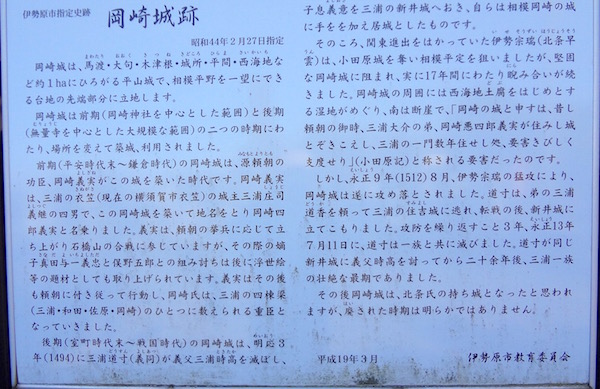 伊勢原市指定史跡
岡崎城跡
昭和44年2月27日指定
岡崎城は、馬渡・大句・木津根・城所・平間・西海地な
ど約1haにひろがる平山城で、相模平野を一望にでき
る台地の先端部分に立地します。
岡崎城は前期(岡崎神社を中心とした範囲)と後期
(無量寺を中心とした大規模な範囲)の二つの時期にわ
たり、場所を変えて築城、利用されました。
前期(平安時代末~鎌倉時代)の岡崎城は、源頼朝の
功臣、岡崎義実がこの城を築いた時代です。岡崎義実
は、三浦の衣笠(現在の横須賀市衣笠)の城主三浦庄司
義継の四男で、この岡崎城を築いて地名をとり岡崎四
郎義実と名乗りました。義実は、頼朝の挙兵に応じて立
ち上がり石橋山の合戦に参じていますが、その際の嫡
子真田与一義忠と俣野五郎との組み討ちは後に浮世絵
等の題材としても取り上げられています。義実はその後
も頼朝に付き従って行動し、岡崎氏は、三浦の四棟梁
(三浦・和田・佐原・岡崎)のひとつに数えられる重臣と
なっていきました。
後期(室町時代末~戦国時代)の岡崎城は、明応3
年(1494)に三浦道寸(義同)が義父三浦時高を滅ぼし、
子息義意を三浦の新井城へおき、自らは相模岡崎の城
に手をを加え居城としたものです。
そのころ、関東進出をはかっていた伊勢宗瑞(北条早
雲)は、小田原城を奪い相模平定を狙いましたが、堅固
な岡崎城に阻まれ、実に17年間にわたり睨み合いが続
きました。岡崎城の周囲には西海地土腐をはじめとす
る湿地がめぐり、南は断崖で、「岡崎の城と申すは、昔し
頼朝の御時、三浦大介の弟、岡崎悪四郎義実が住みし城
とぞきこえし、三浦の一門数年住せし処、要害きびしく
支度せり」(小田原記)と称される要害だったのです。
しかし、永正9年(1512)8月、伊勢宗瑞の猛攻により、
岡崎城は遂に攻め落とされました。道寸は、弟の三浦
道香を頼って三浦の住吉城に逃れ、転戦の後、新井城に
立てこもりました。攻防を繰り返すこと3年、永正13年
7月11日に、道寸は一族と共に滅びました。道寸が同じ
新井城に義父時高を討ってから二十余年後、三浦一族
の壮絶な最期でありました。
その後岡崎城は、北条氏の持ち城となったと思われ
ますが、廃された時期は明らかではありません。
平成19年3月
伊勢原市教育委員会